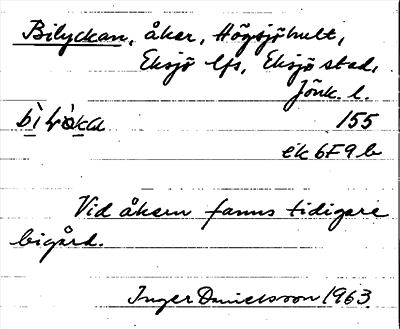 Bilyckan, åker, Högsjöhult,
Eksjö lfs, Eksjö stad,
Jönk. l.
155
ek 6F9b
Vid åkern fanns tidigare
bigård.
Inger Danielsson 1963